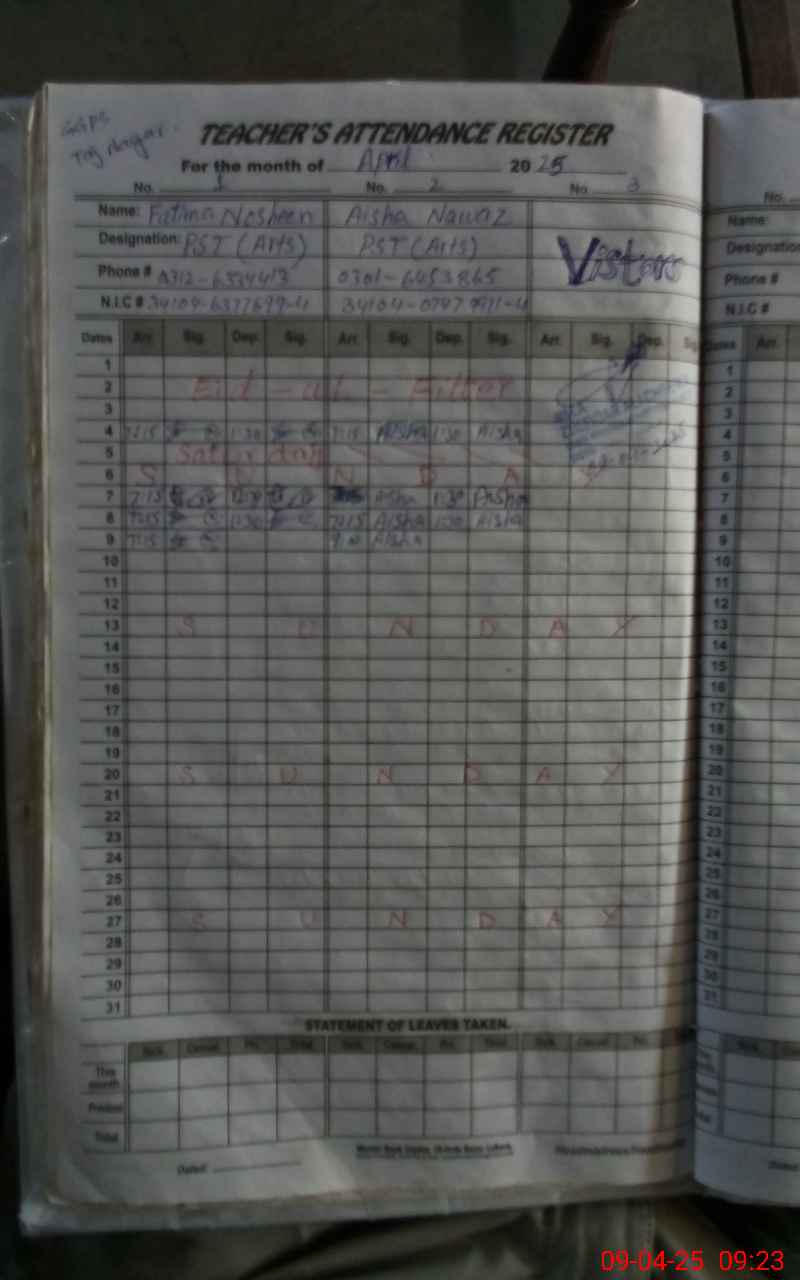 GGPS
Taj Nagar.
TEACHER'S ATTENDANCE REGISTER
For the month of April 2025
No. 1 No. 2 No 3
Name: Fatima Nosheen Aisha Nawaz
Designation: P.S.T (Arts) P.S.T (Arts) Visitors
Phone # 0301-6453865
N.I.C #
Dates Arr. Sig. Dep. Sig. Arr. Sig. Dep. Sig. Arr. Sig. Dep. Sig
1
2 Eid - ul - Fitter
3
4 7:15 1:30 7:15 Aisha 1:30 Aisha
5 Saturday
6 S U N D A Y
7 7:15 1:30 Aisha 1:30 Aisha
8 7:15 1:30 7:15 Aisha 1:30 Aisha
9 7:15 Aisha
10
11
12
13 S U N D A Y
14
15
16
17
18
19
20 S U N D A Y
21
22
23
24
25
26
27 S U N D A Y
28
29
30
31
STATEMENT OF LEAVES TAKEN.
Sick. Casual. Pri. Total. Sick. Casual. Pri. Total. Sick. Casual. Pri.
This month
Previous
Total
Dated:
No.
Name:
Designation
Phone #
N.I.C #
Dates Arr.
1
2
3
4
5
6
7
8
9
10
11
12
13
14
15
16
17
18
19
20
21
22
23
24
25
26
27
28
29
30
31
09-04-25 09:23